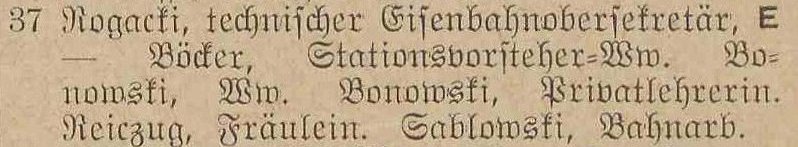 37 Rogacki, technischer Eisenbahnobersekretär, E
— Böcker, Stationsvorsteher-Ww. Bo-
nowski, Ww. Bonowski, Privatlehrerin.
Reiczug, Fräulein. Sablowski, Bahnarb.